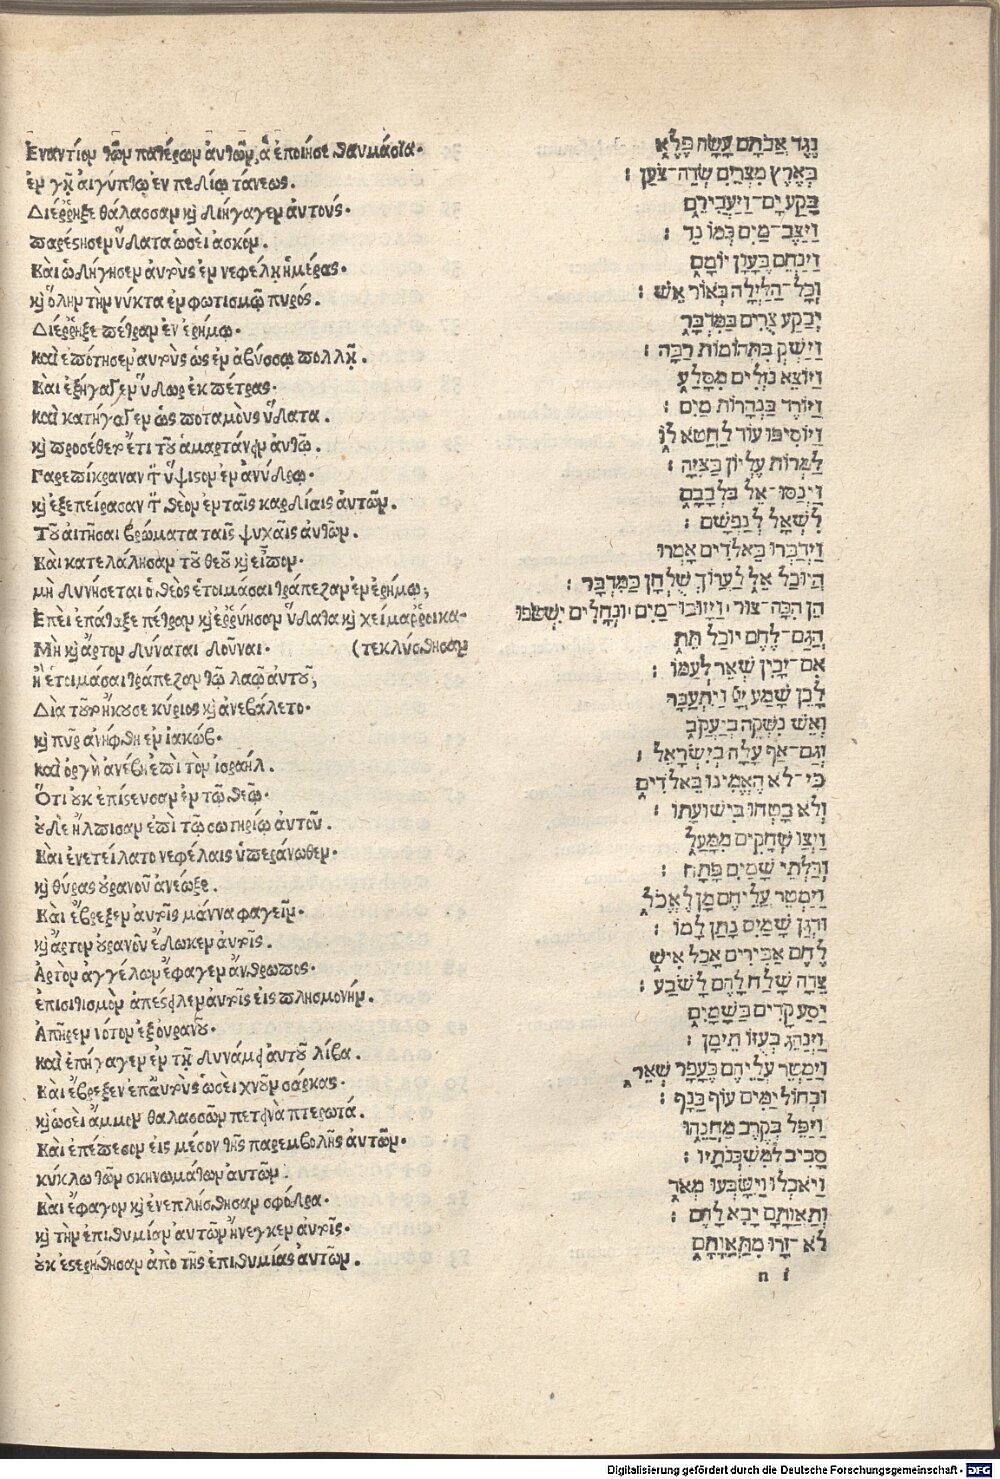 Ἐναντίον τῶν πατέρων ἀυτῶν, ἃ ἐποίησε θαυμάσια.
ἐν γῇ ἀιγύπτῳ ἐν πεδίῳ τάνεως.
Διέῤῥηξε θάλασσαν καὶ διήγαγεν ἀυτούς.
παρέστησεν ὕδατα ὡσεὶ ἀσκόν.
Καὶ ὡδήγησεν ἀυτοὺς ἐν νεφέλῃ ἡμέρας.
καὶ ὅλην τὴν νύκτα ἐν φωτισμῷ πυρός.
Διέῤῥηξε πέτραν ἐν ἐρήμῳ.
καὶ ἐπότησεν ἀυτοὺς ὡς ἐν ἀβύσσῳ πολλῇ.
Καὶ ἐξήγαγεν ὕδωρ ἐκ πέτρας.
καὶ κατήγαγεν ὡς ποταμοὺς ὕδατα.
καὶ προσέθεντο ἔτι τοῦ ἁμαρτάνειν ἀυτῷ.
Παρεπίκραναν τὸν ὕψιστον ἐν ἀνύδρῳ.
καὶ ἐξεπείρασαν τὸν θεὸν ἐν ταῖς καρδίαις ἀυτῶν.
Τοῦ ἀιτῆσαι βρώματα ταῖς ψυχαῖς ἀυτῶν.
Καὶ κατελάλησαν τοῦ θεοῦ καὶ εἶπον.
μὴ δυνήσεται ὁ θεὸς ἑτοιμάσαι τράπεζαν ἐν ἐρήμῳ;
Ἐπεὶ ἐπάταξε πέτραν καὶ ἐῤῥύησαν ὕδατα καὶ χείμαῤῥοι κα-
Μὴ καὶ ἄρτον δύναται δοῦναι. (τεκλύσθησαν
ἢ ἑτοιμάσαι τράπεζαν τῷ λαῷ ἀυτοῦ;
Διὰ τοῦτο ἤκουσε κύριος καὶ ἀνεβάλετο.
καὶ πῦρ ἀνήφθη ἐν ἰακώβ.
καὶ ὀργὴ ἀνέβη ἐπὶ τὸν ἰσραήλ.
Ὅτι ουκ ἐπίστευσαν ἐν τῷ θεῷ.
ουδὲ ἤλπισαν ἐπὶ τῷ σωτηρίῳ ἀυτοῦ.
Καὶ ἐνετείλατο νεφέλαις ὑπεράνωθεν.
καὶ θύρας ουρανοῦ ἀνέωξε.
Καὶ ἔβρεξεν ἀυτοῖς μάννα φαγεῖν.
καὶ ἄρτον ουρανοῦ ἔδωκεν ἀυτοῖς.
Ἄρτον ἀγγέλων ἔφαγεν ἄνθρωπος.
ἐπισιτισμὸν ἀπέστειλεν ἀυτοῖς εἰς πλησμονήν.
Ἀπῆρεν νότον ἐξ ουρανοῦ.
καὶ ἐπήγαγεν ἐν τῇ δυνάμει ἀυτοῦ λίβα.
Καὶ ἔβρεξεν ἐπ' ἀυτοὺς ὡσεὶ χνοῦν σάρκας.
καὶ ὡσεὶ ἄμμον θαλασσῶν πετεινὰ πτερωτά.
Καὶ ἐπέπεσον εἰς μέσον τῆς παρεμβολῆς ἀυτῶν.
κύκλῳ τῶν σκηνωμάτων ἀυτῶν.
Καὶ ἔφαγον καὶ ἐνεπλήσθησαν σφόδρα.
καὶ τὴν ἐπιθυμίαν ἀυτῶν ἤνεγκεν ἀυτοῖς.
ουκ ἐστερήθησαν ἀπὸ τῆς ἐπιθυμίας ἀυτῶν.
נֶגֶד אֲבֹתָם עָשָׂה פֶלֶא
בְּאֶרֶץ מִצְרַיִם שְׂדֵה־צֹעַן׃
בָּקַע יָם־וַיַּעֲבִירֵם
וַיַּצֶּב־מַיִם כְּמוֹ נֵד׃
וַיַּנְחֵם בֶּעָנָן יוֹמָם
וְכָל־הַלַּיְלָה בְּאוֹר אֵשׁ׃
יְבַקַּע צֻרִים בַּמִּדְבָּר
וַיַּשְׁקְ כִּתְהוֹמוֹת רַבָּה׃
וַיּוֹצֵא נוֹזְלִים מִסָּלַע
וַיּוֹרֶד כַּנְּהָרוֹת מָיִם׃
וַיּוֹסִיפוּ עוֹד לַחֲטֹא לוֹ
לַמְרוֹת עֶלְיוֹן בַּצִּיָּה׃
וַיְנַסּוּ־אֵל בִּלְבָבָם
לִשְׁאָל לְנַפְשָׁם׃
וַיְדַבְּרוּ בֵּאלֹדִים אָמְרוּ
הֲיוּכַל אֵל לַעֲרוֹךְ שֻׁלְחָן בַּמִּדְבָּר׃
הֵן הִכָּה־צוּר וַיָּזוּבוּ־מַיִם וּנְחָלִים יִשְׁטֹפוּ
הֲגַם־לֶחֶם יוּכַל תֵּת
אִם־יָכִין שְׁאֵר לְעַמּוֹ׃
לָכֵן שָׁמַע יְיָ וַיִּתְעַבָּר
וְאֵשׁ נִשְּׂקָה בְיַעֲקֹב
וְגַם־אַף עָלָה בְיִשְׂרָאֵל׃
כִּי־לֹא הֶאֱמִינוּ בֵּאלֹדִים
וְלֹא בָטְחוּ בִּישׁוּעָתוֹ׃
וַיְצַו שְׁחָקִים מִמָּעַל
וְדַלְתֵי שָׁמַיִם פָּתָח׃
וַיַּמְטֵר עֲלֵיהֶם מָן לֶאֱכֹל
וּדְגַן שָׁמַיִם נָתַן לָמוֹ׃
לֶחֶם אַבִּירִים אָכַל אִישׁ
צֵדָה שָׁלַח לָהֶם לָשֹׂבַע׃
יַסַּע קָדִים בַּשָּׁמָיִם
וַיְנַהֵג בְּעֻזּוֹ תֵימָן׃
וַיַּמְטֵר עֲלֵיהֶם כֶּעָפָר שְׁאֵר
וּכְחוֹל יַמִּים עוֹף כָּנָף׃
וַיַּפֵּל בְּקֶרֶב מַחֲנֵהוּ
סָבִיב לְמִשְׁכְּנֹתָיו׃
וַיֹּאכְלוּ וַיִּשְׂבְּעוּ מְאֹד
וְתַאֲוָתָם יָבִא לָהֶם׃
לֹא־זָרוּ מִתַּאֲוָתָם
n i
Digitalisierung gefördert durch die Deutsche Forschungsgemeinschaft - DFG